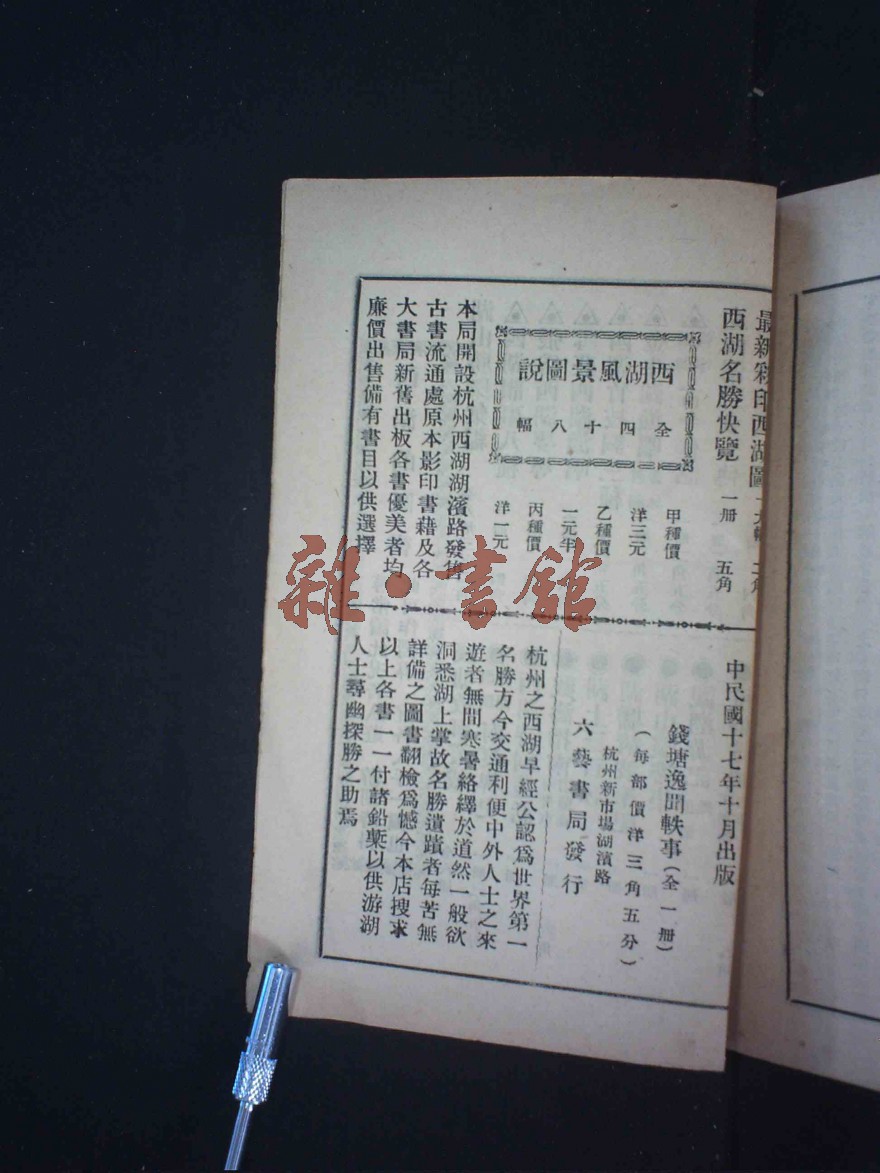 最新彩印西湖圖
西湖名勝快覽 一册 五角
西湖風景圖說
全四十八幅
甲種價
洋三元
乙種價
一元半
丙種價
洋一元
本局開設杭州西湖湖濱路發售
古書流通處原本影印書藉及各
大書局新舊出板各書優美者均
廉價出售備有書目以供選擇
中民國十七年十月出版
錢塘逸聞軼事(全一册)
(每部價洋三角五分)
杭州新市場湖濱路
六藝書局發行
杭州之西湖早經公認爲世界第一
名勝方今交通利便中外人士之來
遊者無間寒暑絡繹於道然一般欲
洞悉湖上掌故名勝遺蹟者每苦無
詳備之圖書翻檢爲憾今本店搜求
以上各書一一付諸鉛槧以供游湖
人士尋幽探勝之助焉
雜·書館